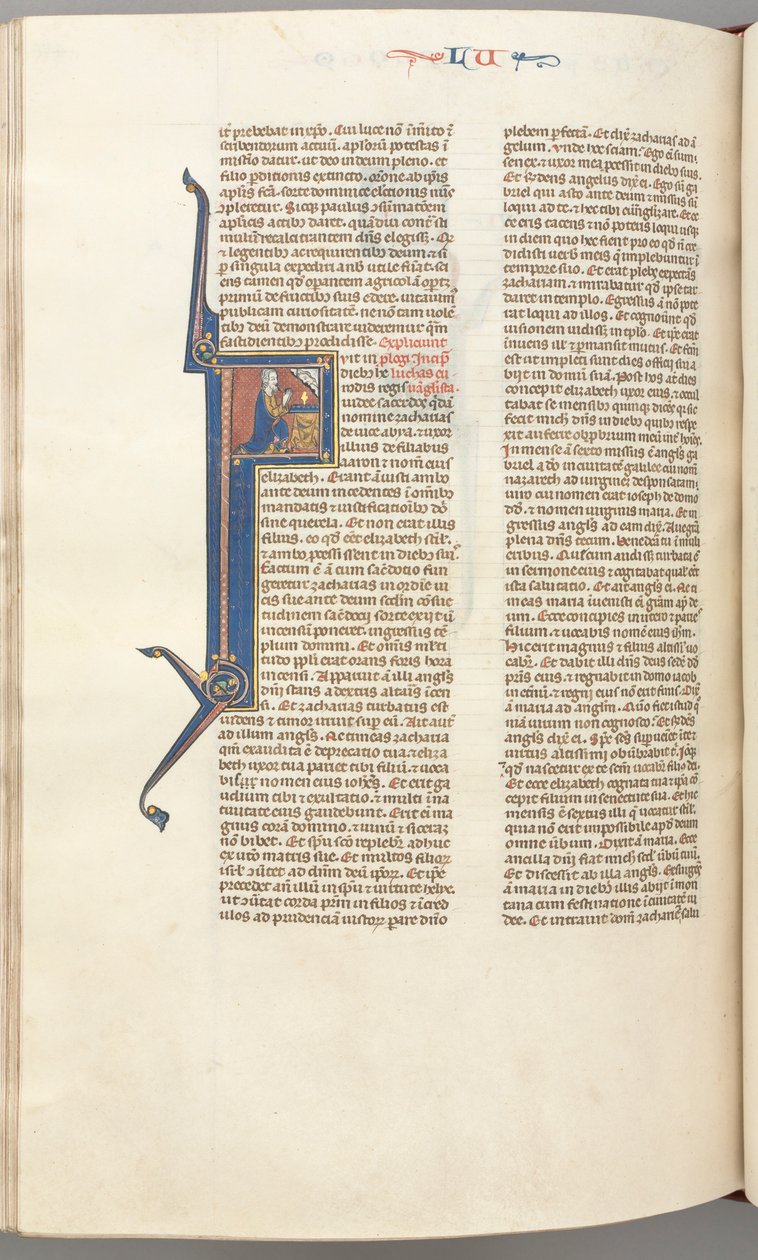 LU
it prebebat in xpo. Cui luce nō īm̄ito ē
scribendorum actuū. aplorū potestas ī
misterio datur. ut deo in deum pleno. et
filio p̄ditionis extincto. oꝛōne ab ip̄is
aplīs fc̄a. sorte dominice electionis nūs
ꝯpleretur. Sicq; paulus ꝯsūmatōem
aplicis actibꝰ daret. quā diu cont̄ sti
mulū recalcitrantem dn̄s elegiss;. Qͥ
⁊ legentibꝰ ac requirentibꝰ deum. ⁊ si
p singula expediri a nob̄ utile fūat. sci
ens tamen qd̛ opantem agricolā oport;
primū de fructibꝰ suis edere. vitauimꝰ
publicam curiositatē. ne nō tam uolē
tibꝰ deū demonstrare uideremur qͣm
fastidientibꝰ prodidisse. Explicuunt
vit in plogi. Incip̄
diebꝰ he lucham eu
rodis regis uāgl̄ista.
iudee sacerdos qͥdā
nomine zacharias
de uice abya. ⁊ uxor
illius de filiabus
aaron ⁊ nomē eius
elizabeth. Erant ā iusti ambo
ante deum incedentes ī om̄ibꝰ
mandatis ⁊ iustificatioībꝰ dn̄i
sine querela. Et non erat illis
filius. eo qd̛ eēt elizabeth stil̛.
⁊ ambo pcessissent in diebꝰ suis.
Factum ē ā cum sac̄dotio fun
geretur zacharias in ordīe ui
cis sue ante deum scd̄m cōsue
tudinem sac̄docii sorte exiit ū
incensū poneret. ingressus tē
plum domini. Et om̄is ml̄ti
tudo pp̄li erat orans foris hora
incensi. Apparuit ā illi angl̄s
dn̄i stans a dextris altaris īcen
si. Et zacharias turbatus est
uidens ⁊ timor irruit sup eū. Ait aut̄
ad illum angl̄s. Ne timeas zacharia
qm̄ exaudita ē deprecatio tua. ⁊ eliza
beth uxor tua pariet tibi filiū. ⁊ uoca
bis nomen eius ioh̄es. Et erit ga
udium tibi ⁊ exultatio. ⁊ multi ī na
tiuitate eius gaudebunt. Erit eī ma
gnus corā domino. ⁊ uinū ⁊ siceraꝫ
nō bibet. Et spū scō replebit̄ adhuc
ex utō matris sue. Et multos filioꝝ
isrl̄ ꝯūtet ad dn̄m deū ip̄oꝝ. Et ipse
precedet añ illū in sp̄u ⁊ uirtute helye.
ut ꝯūtat corda pr̄m in filios ⁊ īcred
ulos ad prudenciā iustoꝝ parare dn̄o
plebem pfectā. Et dix̄ zacharias ad ā
gelum. Vnde hoc sciam. Ego eī sum
senex ⁊ uxor mea pcessit in diebꝰ suis.
Et rn̄dens angelus dix̄ ei. Ego sū ga
briel qui asto ante deum ⁊ missus sū
loqui ad te. ⁊ hec tibi euāglizare. Et ec
ce eris tacens ⁊ nō poteris loqui usq;
in diem quo hec fient pro eo qd̛ n̄ cre
didisti verb̄ meis q̄ implebuntur ī
tempore suo. Et erat plebs expectās
zachariam. ⁊ mirabatur qd̛ ip̄e tar
daret in templo. Egressus ā nō pote
rat loqui ad illos. Et cognouer̄t qd̛
uisionem uidiss; in tēplo. Et ip̄e erat
innuens ill̛ ⁊ pmansit mutus. Et factū
est ut impleti sunt dies officii sui a
biit in domū suā. Post hos āt dies
concepit elizabeth uxor eius. ⁊ occul
tabat se mensibꝰ quinq; dicēs qr̄ sic
fecit mich̄ dn̄s in diebꝰ quibꝰ respe
xit auferre obprbrium meū int̄ hoīes.
In mense ā sexto missus ē angl̄s ga
briel a dō in ciuitatē galilee cui nom̄
nazareth ad uirginē desponsatam
uiro cui nomen erat ioseph de domo
dd̄. ⁊ nomen uirginis maria. Et in
gressus angl̄s ad eam dix̄. Aue grā
plena dn̄s tecum. benedcā tu ī muli
eribus. Que cum audiss; turbata ē
in sermone eius ⁊ cogitabat qual̄ eēt
ista salutatio. Et ait angl̄s ei. Ne ti
meas maria īuenisti eī grām apd̛ de
um. Ecce concipies in utero ⁊ paries
filium. ⁊ uocabis nomē eius ih̄m.
Hic erit magnus ⁊ filius altissimi uo
cabit̄. Et dabit illi dn̄s deus sedē dd̄
pr̄is eius. ⁊ regnabit in domo iacob
in et̄nū. ⁊ regni eius nō erit finis. Dix̄
ā maria ad angl̄m. Quō fiet istud qm̄
uirum non cognosco. Et rn̄des
angl̄s dix̄ ei. Sp̄s scs̄ supueniet in te
⁊ uirtus altissimi obūbrabit t̄. Ioq;
⁊ qd̛ nascetur ex te scm̄ uocabit̄ filiꝰ dei.
Et ecce elizabeth cognata tua ⁊ ip̄a cō
cepit filium in senectute sua. Et hic
mensis ē sextus illi q̄ uocatur stīl̄.
quia non erit impossibile apd̛ deum
omne ūbum. Dixit ā maria. Ecce
ancilla dn̄i fiat mich̄ scd̄ ūbū tuū.
Et discessit ab illa angl̄s. Exsurgēs
ā maria in diebꝰ illis abiit ī mon
tana cum festinatione ī ciuitatē iu
dee. Et intrauit domū zacharie ⁊ salu